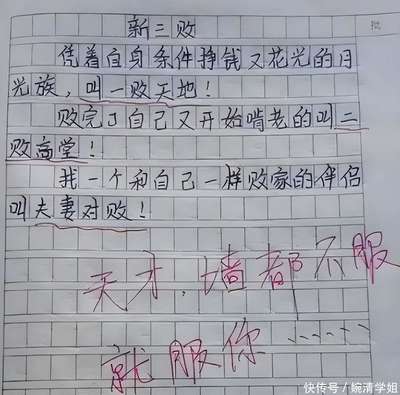 新三败
凭着自身条件挣钱又花光的月
光族，叫一败天地！
败完了自己又开始啃老的叫二
败高堂！
找一个和自己一样败家的伴侣
叫夫妻对败！
天才，墙都不服
就服你……
快传号/婉清学姐